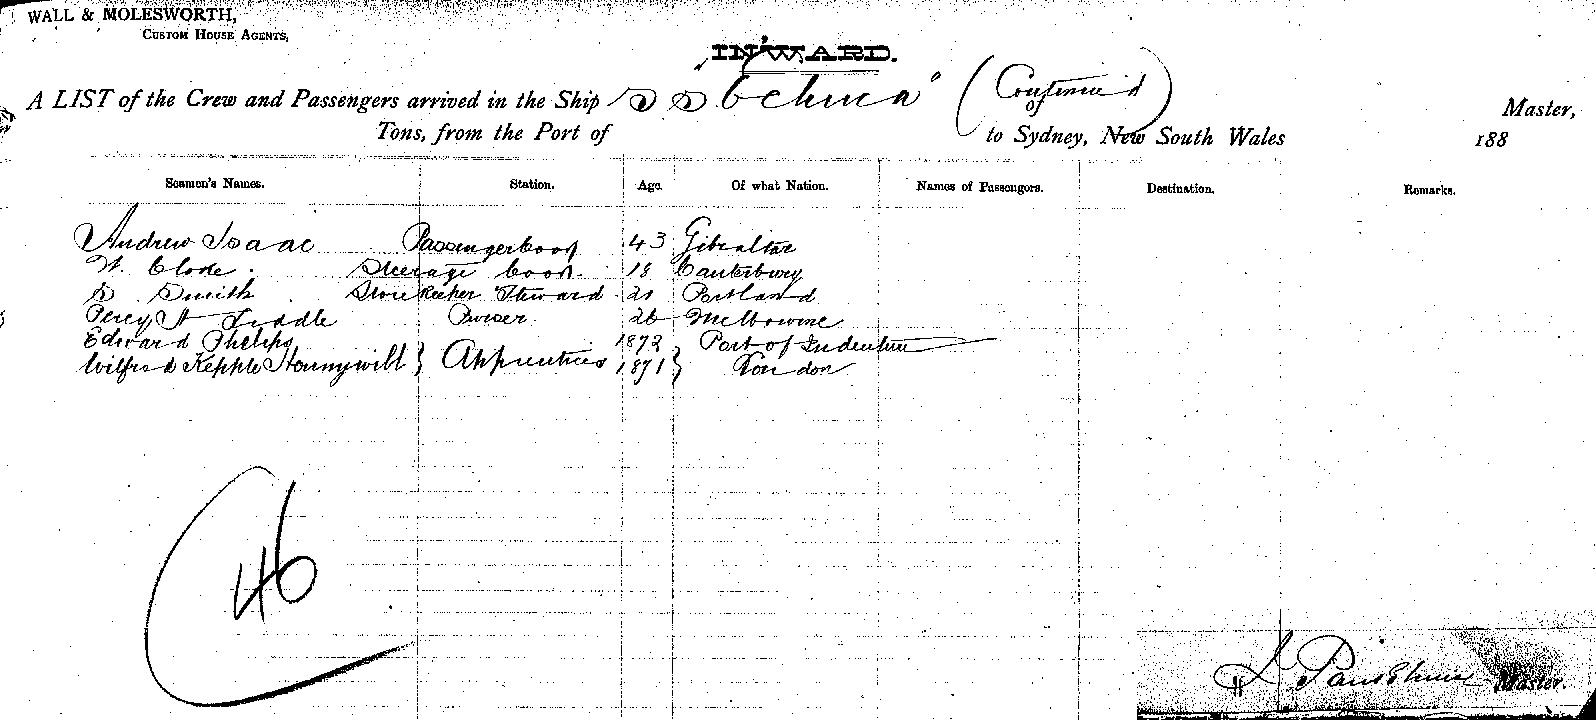 WALL & MOLESWORTH,
CUSTOM HOUSE AGENTS,
INWARD.
A LIST of the Crew and Passengers arrived in the Ship SS Echuca" (Continued) of Master,
Tons, from the Port of to Sydney, New South Wales 188
Seamen's Names. Station. Age. Of what Nation. Names of Passengers. Destination. Remarks.
Andrew Isaac Passenger Cook 43 Gibraltar
W. Close Steerage Cook 18 Canterbury
S Smith Storekeeper Steward 21 Portland
Percy A Liddle Purser 26 Melbourne
Edward Phelips 1872 Port of Indenture
Wilfred Kepple Hunnywill } Apprentices 1871 } London
46
Master.